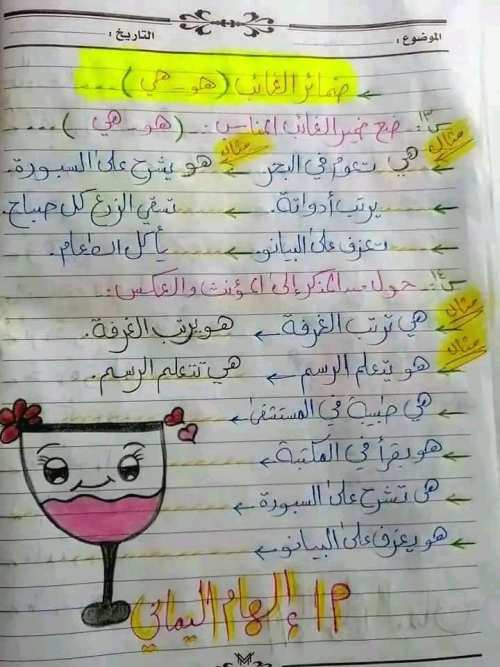 الموضوع : التاريخ :
ضمائر الغائب (هو - هي) ....
س٣: ضع ضمير الغائب المناسب :. (هو - هي) ....
مثال مثال
هي تعوم في البحر ← هو يشرح على السبورة.
← ........ يرتب أدواته. ← ........ تسقي الزرع كل صباح.
← ........ تعزف على البيانو ← ........ يأكل الطعام.
س٤: حول .. المذكر إلى المؤنث والعكس :.
مثال
هي ترتب الغرفة ← هو يرتب الغرفة.
مثال
هو يتعلم الرسم ← هي تتعلم الرسم.
هي طبيبة في المستشفى ←
هو يقرأ في المكتبة ←
هي تشرح على السبورة ←
هو يعزف على البيانو ←
م / إلهام اليماني